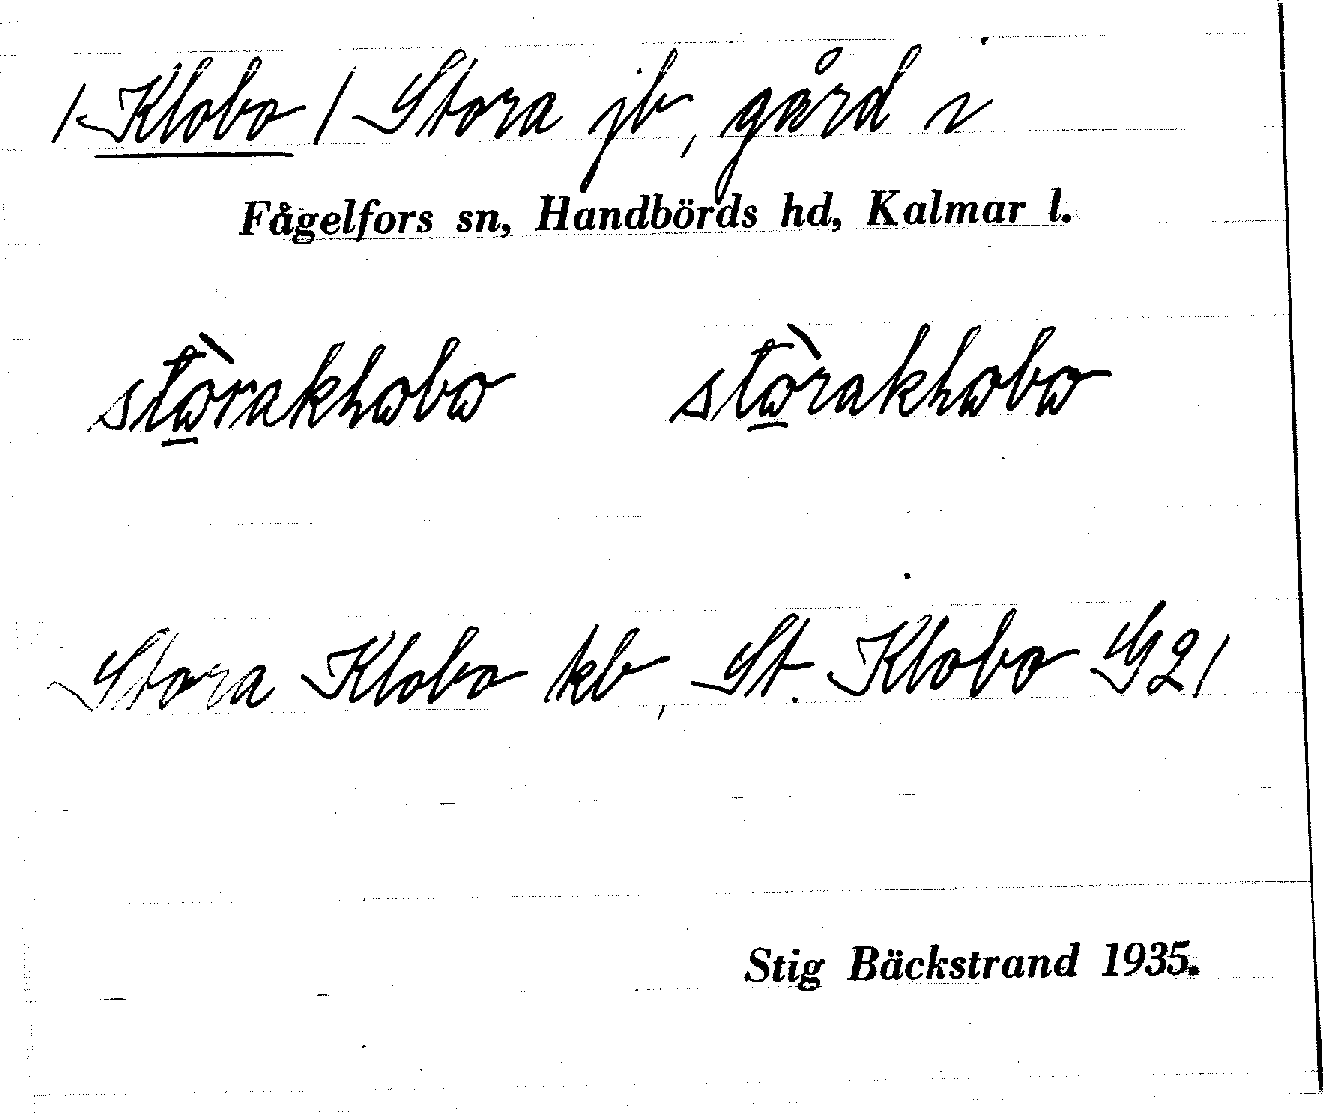 /-Klobo / Stora jb, gård i
Fågelfors sn, Handbörds hd, Kalmar l.
Stora Klobo kb, St. Klobo G21
Stig Bäckstrand 1935.